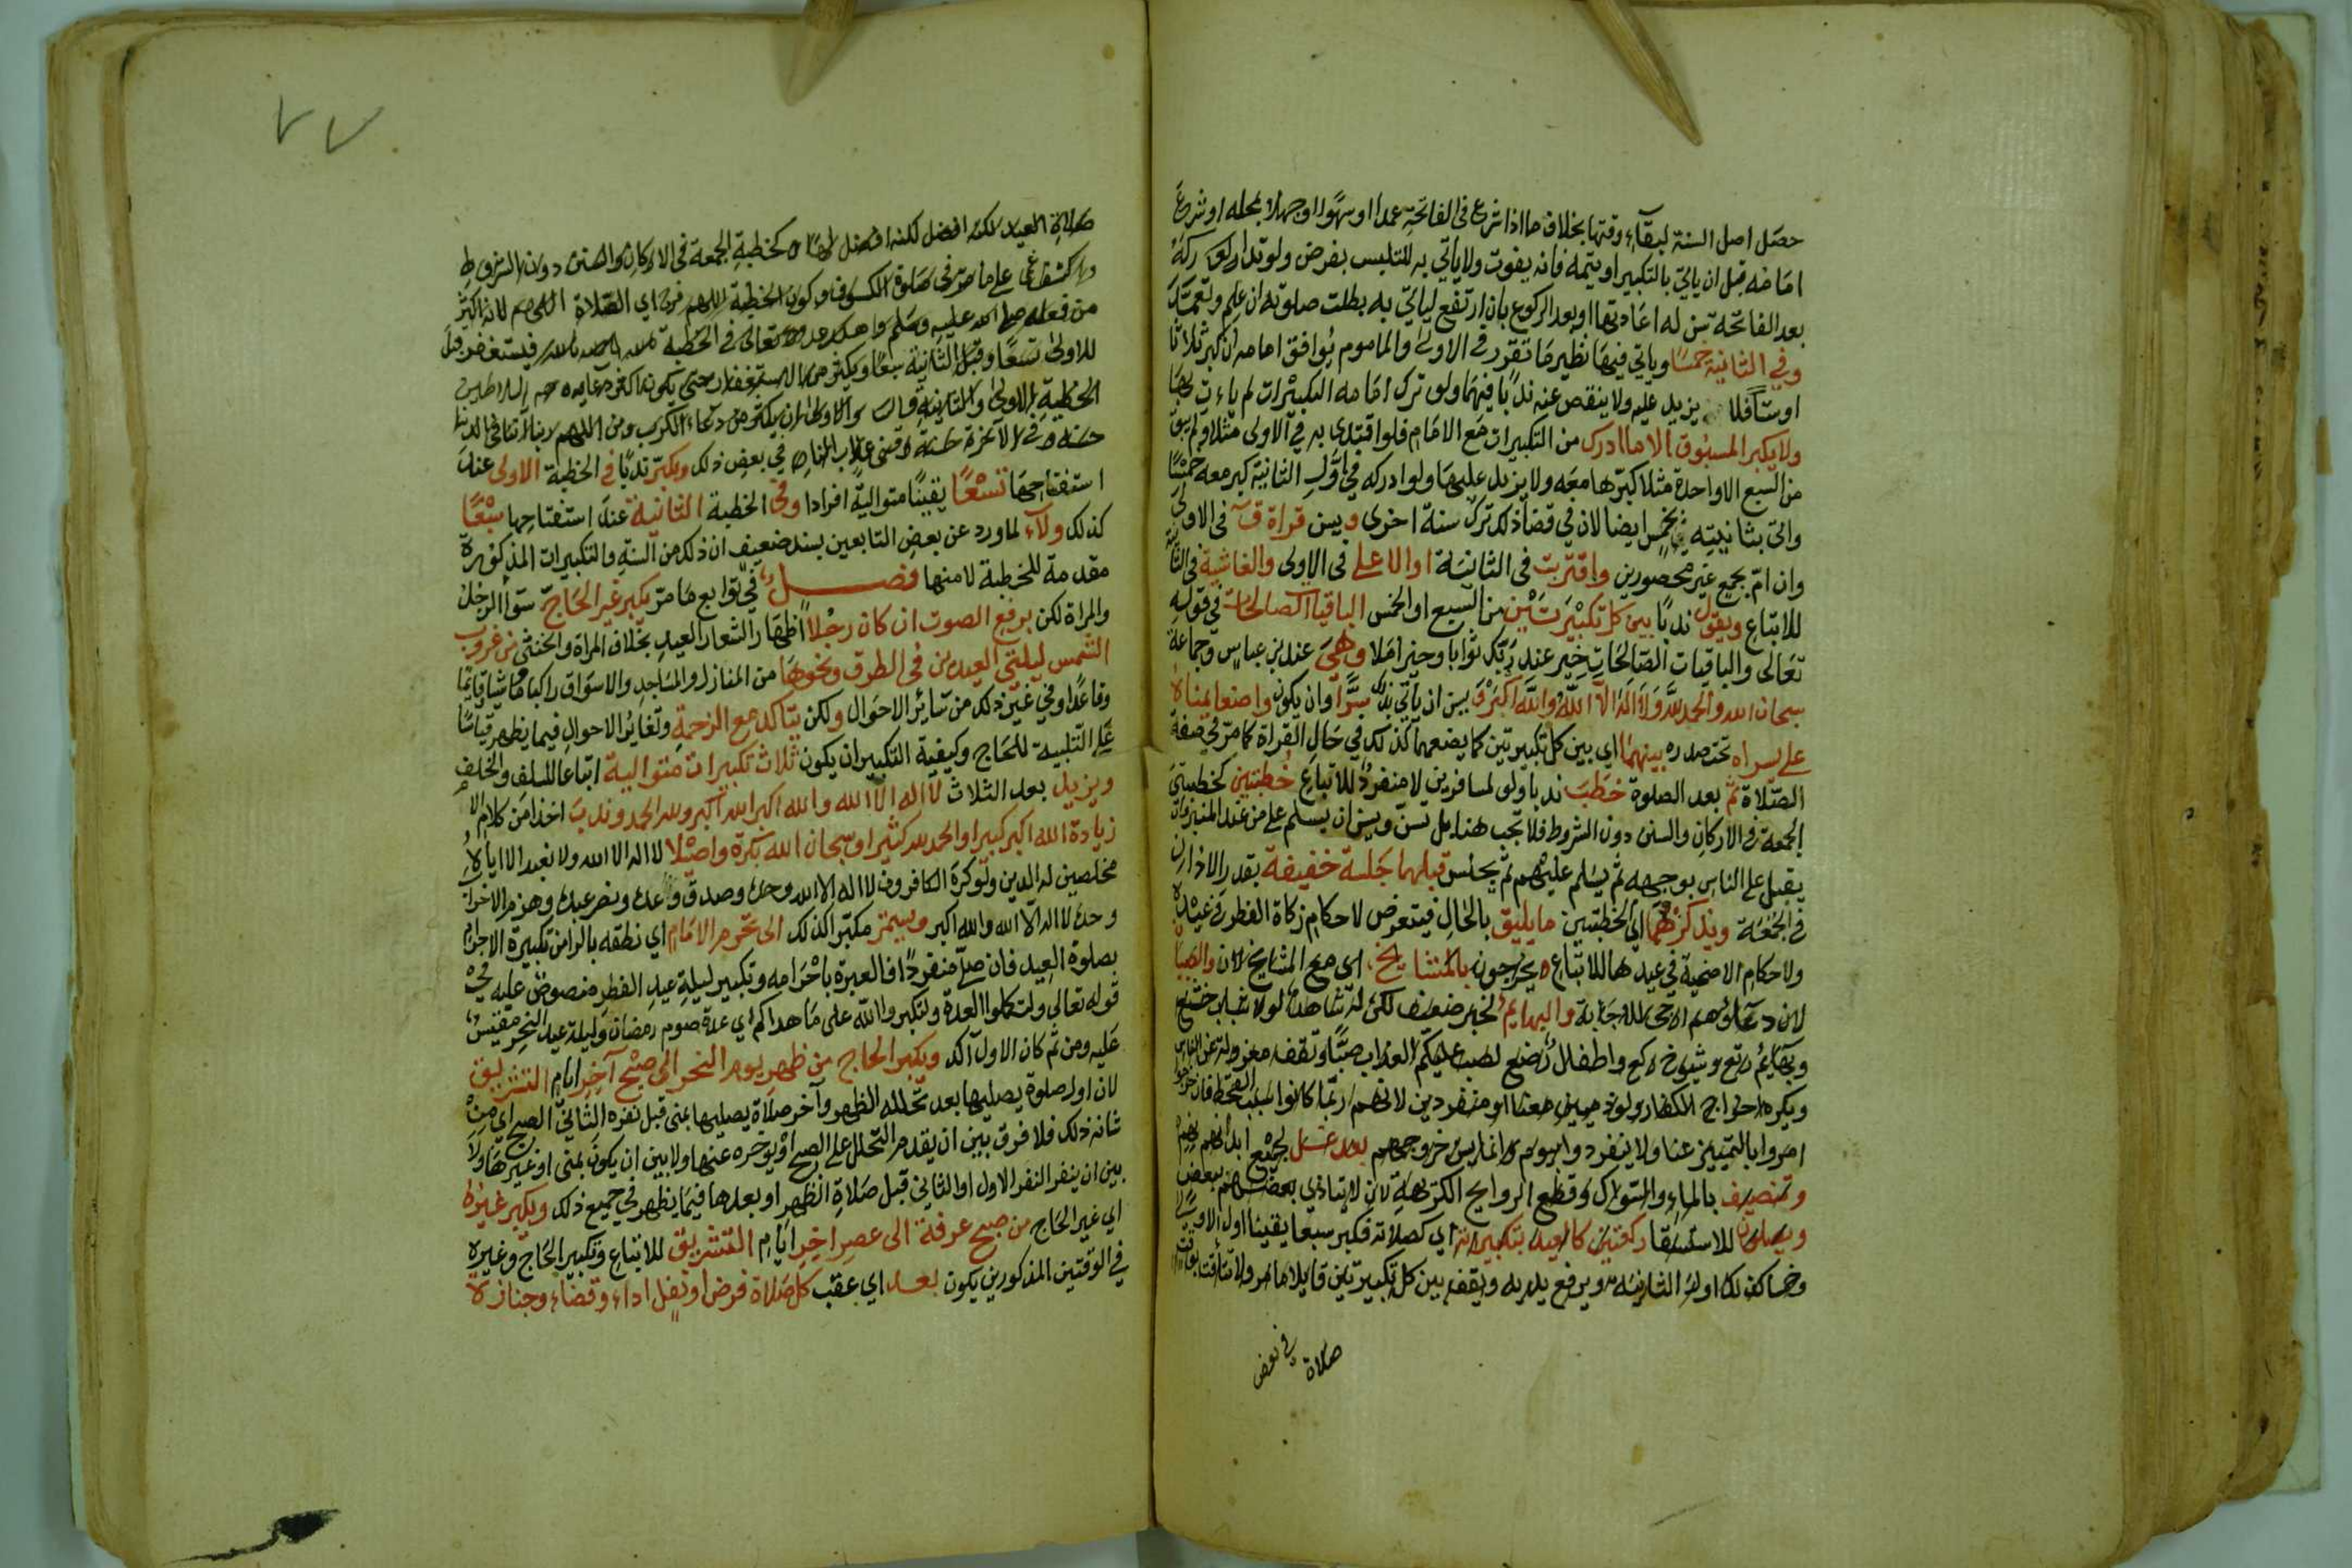 حصل اصل السنة لبقآء وقتها بخلاف ما اذا شرع فى الفاتحة عمدا او سهوا او جهلا بمحله او شرع
امامه قبل ان ياتي بالتكبير او يتمه فانه يفوت ولا ياتي به للتلبس بفرض ولو تداركه
بعد الفاتحة سن له اعادتها او بعد الركوع بان ارتفع لياتي به بطلت صلوته ان علم وتعمد
وفي الثانية خمسا وياتي فيها نظير ما تقرر في الاولى والماموم يوافق امامه ان كبر ثلاثا
او ستا فلا يزيد عليه ولا ينقص عنه ندبا فيهما ولو ترك امامه التكبيرات لم يات بها
ولا يكبر المسبوق الا ما ادرك من التكبيرات مع الامام فلو اقتدى به في الاولى مثلا ولم يبق
من السبع الا واحدة مثلا كبرها معه ولا يزيد عليها ولو ادركه في اول الثانية كبر معه خمسا
واتى بثانيته بخمس ايضا لان في قضا ذلك ترك سنة اخرى ويسن قراة ق فى الاولى
وان ام بجمع غير محصورين واقتربت فى الثانية او الاعلى فى الاولى والغاشية فى الثانية
للاتباع ويقول ندبا بين كل تكبيرتين من السبع او الخمس الباقيات الصالحات في قوله
تعالى والباقيات الصالحات خير عند ربك ثوابا وخير املا وهي عند ابن عباس وجماعة
سبحان الله والحمد لله ولا اله الا الله والله اكبر ويسن ان ياتي بذلك سرا وان يكون واضعا يمناه
على يسراه تحت صدره بينهما اي بين كل تكبيرتين كما يضعهما كذلك في حال القراة كما مر في صفة
الصلاة ثم بعد الصلوة خطب ندبا ولو لمسافرين لا منفرد للاتباع خطبتين كخطبتي
الجمعة في الاركان والسنن دون الشروط فلا تجب هنا بل تسن ويسن ان يسلم على من عند المنبر وان
يقبل على الناس بوجهه ثم يسلم عليهم ثم يجلس قبلهما جلسة خفيفة بقدر الاذان
في الجمعة ويذكر فيهما اي الخطبتين ما يليق بالحال فيتعرض لاحكام زكاة الفطر في عيده
ولاحكام الاضحية في عيدها للاتباع ويخرجون بالمشايخ اي مع المشايخ لان والصبيان
لان دعاؤهم ارجى للاجابة والبهايم لخبر ضعيف لكن له شاهد لولا شباب خشع
وبهايم رتع وشيوخ ركع واطفال رضع لصب عليكم العذاب صبا وتقف معزولة عن الناس
ويكره اخراج الكفار ولو ذميين معنا او منفردين لانهم ربما كانوا سبب القحط فان خرجوا
امروا بالتمييز عنا ولا ينفردوا بيوم وانما يسن خروجهم بعد غسل لجميع ابدانهم
وتنظيف بالماء والسواك وقطع الروايح الكريهة لان لا يتاذي بعضهم ببعض
ويصلون للاستسقا ركعتين كالعيد بتكبيراته اي كصلاته فكبر سبعا يقينا اول الاولى
وخمسا كذلك اول الثانية ويرفع يديه ويقف بين كل تكبيرتين قايلا ما مر ولا تتاقت بوقت
صلاة في بعض
٧٧
صلاة العيد لكنه افضل كخطبة الجمعة في الاركان والسنن دون الشروط
على ما مر فى صلوة الكسوف وكون الخطبة
من فعله صلى الله عليه وسلم تعالى في الخطبة فيستغفر قبل
للاولى تسعا وقبل الثانية سبعا ويكثر من الاستغفار حتى يكون اكثر دعايه
الخطبة الاولى والثانية والاولى ان يكثر من دعاء الكرب ومن اللهم ربنا آتنا في الدنيا
حسنة وفي الآخرة حسنة وقنا عذاب النار في بعض ذلك ويكبر ندبا في الخطبة الاولى عند
استفتاحها تسعا يقينا متوالية افرادا وفي الخطبة الثانية عند استفتاحها سبعا
كذلك ولآء لما ورد عن بعض التابعين بسند ضعيف ان ذلك من السنة والتكبيرات المذكورة
مقدمة للخطبة لا منها فصل في توابع ما مر يكبر غير الحاج سوآ الرجل
والمراة لكن برفع الصوت ان كان رجلا اظهارا لشعار العيد بخلاف المراة والخنثى من غروب
الشمس ليلتي العيدين في الطرق ونحوها من المنازل والمساجد والاسواق راكبا وماشيا وقايما
وقاعدا وفي غير ذلك من سائر الاحوال ولكن يتاكد مع الزحمة وتغاير الاحوال فيما يظهر قياسا
على التلبية للحاج وكيفية التكبير ان يكون ثلاث تكبيرات متوالية اتباعا للسلف والخلف
ويزيد بعد الثلاث لا اله الا الله والله اكبر الله اكبر ولله الحمد وندب اخذا من كلام الام
زيادة الله اكبر كبيرا والحمد لله كثيرا وسبحان الله بكرة واصيلا لا اله الا الله ولا نعبد الا اياه
مخلصين له الدين ولو كره الكافرون لا اله الا الله وحده وصدق وعده ونصر عبده وهزم الاحزاب
وحده لا اله الا الله والله اكبر ويستمر مكبرا كذلك الى تحرم الامام اي نطقه بالرا من تكبيرة الاحرام
بصلوة العيد فان صلى منفردا فالعبرة باحرامه وتكبير ليلة عيد الفطر منصوص عليه في
قوله تعالى ولتكملوا العدة ولتكبروا الله على ما هداكم اي عدة صوم رمضان وليلة عيد النحر مقيس
عليه ومن ثم كان الاول آكد ويكبر الحاج من ظهر يوم النحر الى صبح آخر ايام التشريق
لان اول صلوة يصليها بعد تحلله الظهر وآخر صلاة يصليها بمنى قبل نفره الثاني الصبح اي من
شانه ذلك فلا فرق بين ان يقدم التحلل على الصبح او يوخره عنها ولا بين ان يكون بمنى او غيرها ولا
بين ان ينفر النفر الاول او الثاني قبل صلاة الظهر او بعدها فيما يظهر في جميع ذلك ويكبر غيره
اي غير الحاج من صبح عرفة الى عصر اخر ايام التشريق للاتباع وتكبير الحاج وغيره
في الوقتين المذكورين يكون بعد اي عقب كل صلاة فرض او نفل اداء وقضاء وجنازة